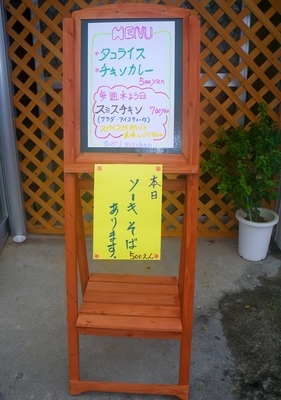 MENU
*タコライス
*チキンカレー
500yen
毎週木よう日
スミスチキン 700yen
(サラダ・アイスティー付)
kitchen
本日
ソーキそば
あります。
500えん